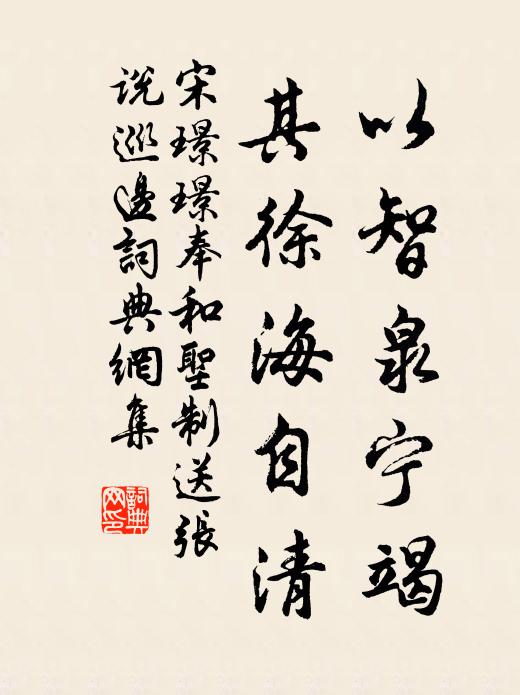 以智泉宁竭
其徐海自清
宋璟璟奉和聖制送張
说巡邊詞典網集
詞典
网印